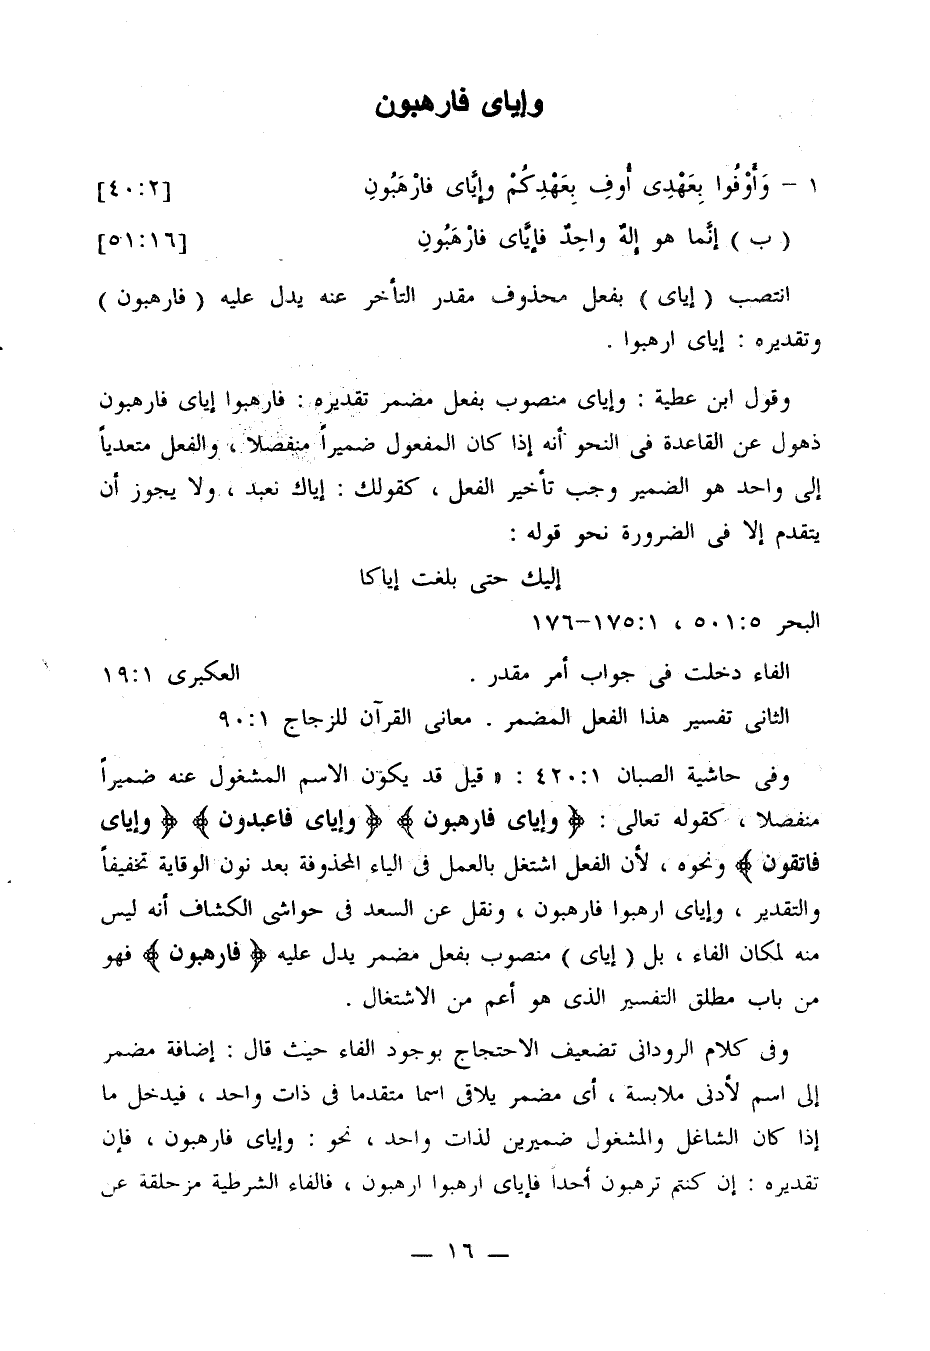 وإياى فارهبون
١ – وَأَوْفُوا بِعَهْدِى أُوفِ بِعَهْدِكُمْ وإيَّاى فارْهَبُونِ [٤٠:٢]
( ب ) إنَّما هو إلهٌ واحِدٌ فإيَّاى فارْهَبُونِ [٥١:١٦]
انتصب ( إياى ) بفعل محذوف مقدر التأخر عنه يدل عليه ( فارهبون )
وتقديره : إياى ارهبوا .
وقول ابن عطية : وإياى منصوب بفعل مضمر تقديره : فارهبوا إياى فارهبون
ذهول عن القاعدة فى النحو أنه إذا كان المفعول ضميراً منفصلا ، والفعل متعدياً
إلى واحد هو الضمير وجب تأخير الفعل ، كقولك : إياك نعبد ، ولا يجوز أن
يتقدم إلا فى الضرورة نحو قوله :
إليك حتى بلغت إياكا
البحر ٥٠١:٥ ، ١٧٥:١–١٧٦
الفاء دخلت فى جواب أمر مقدر . العكبرى ١٩:١
الثانى تفسير هذا الفعل المضمر . معانى القرآن للزجاج ٩٠:١
وفى حاشية الصبان ٤٢٠:١ : « قيل قد يكون الاسم المشغول عنه ضميراً
منفصلا ، كقوله تعالى : ﴿ وإياى فارهبون ﴾ ﴿ وإياى فاعبدون ﴾ ﴿ وإياى
فاتقون ﴾ ونحوه ، لأن الفعل اشتغل بالعمل فى الياء المحذوفة بعد نون الوقاية تخفيفاً
والتقدير ، وإياى ارهبوا فارهبون ، ونقل عن السعد فى حواشى الكشاف أنه ليس
منه لمكان الفاء ، بل ( إياى ) منصوب بفعل مضمر يدل عليه ﴿ فارهبون ﴾ فهو
من باب مطلق التفسير الذى هو أعم من الاشتغال .
وفى كلام الرودانى تضعيف الاحتجاج بوجود الفاء حيث قال : إضافة مضمر
إلى اسم لأدنى ملابسة ، أى مضمر يلاقى اسما متقدما فى ذات واحد ، فيدخل ما
إذا كان الشاغل والمشغول ضميرين لذات واحد ، نحو : وإياى فارهبون ، فإن
تقديره : إن كنتم ترهبون أحداً فإياى ارهبوا ارهبون ، فالفاء الشرطية مزحلقة عن
— ١٦ —